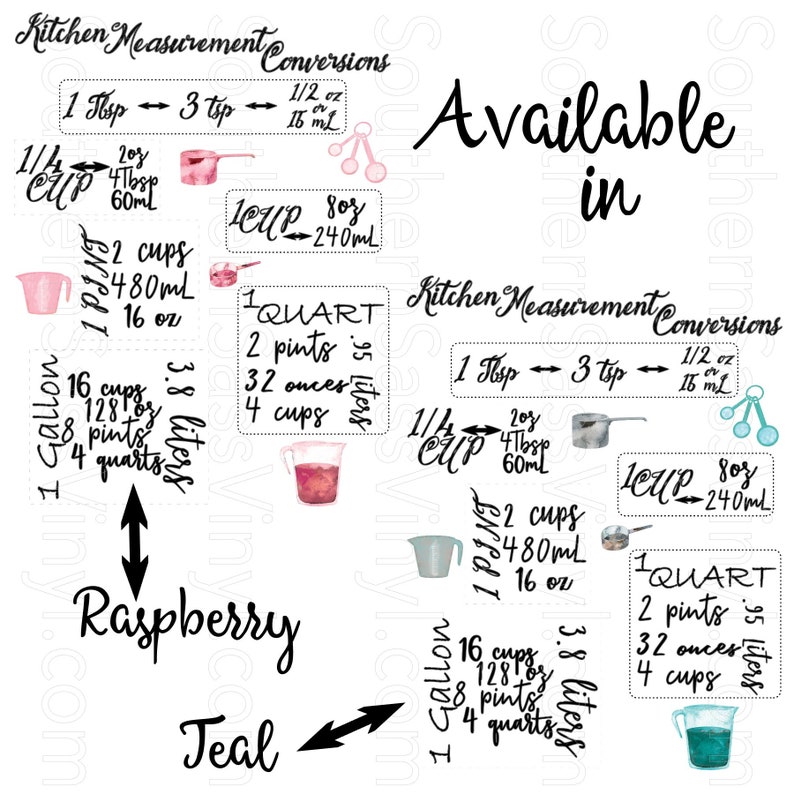 Kitchen Measurement
Conversions
1 Tbsp ↔ 3 tsp ↔ 1/2 oz
or
15 mL
1/4 CUP ↔ 2oz
4Tbsp
60mL
1CUP ↔ 8oz
240mL
1 PINT
2 cups
480mL
16 oz
1 QUART
2 pints
32 ounces
4 cups
.95 liters
1 Gallon
16 cups
128 oz
8 pints
4 quarts
3.8 liters
Raspberry
Available
in
Kitchen Measurement
Conversions
1 Tbsp ↔ 3 tsp ↔ 1/2 oz
or
15 mL
1/4 CUP ↔ 2oz
4Tbsp
60mL
1CUP ↔ 8oz
240mL
1 PINT
2 cups
480mL
16 oz
1 QUART
2 pints
32 ounces
4 cups
.95 liters
1 Gallon
16 cups
128 oz
8 pints
4 quarts
3.8 liters
Teal
SouthernSassVinyl.com
SouthernSassVinyl.com
SouthernSassVinyl.com
SouthernSassVinyl.com